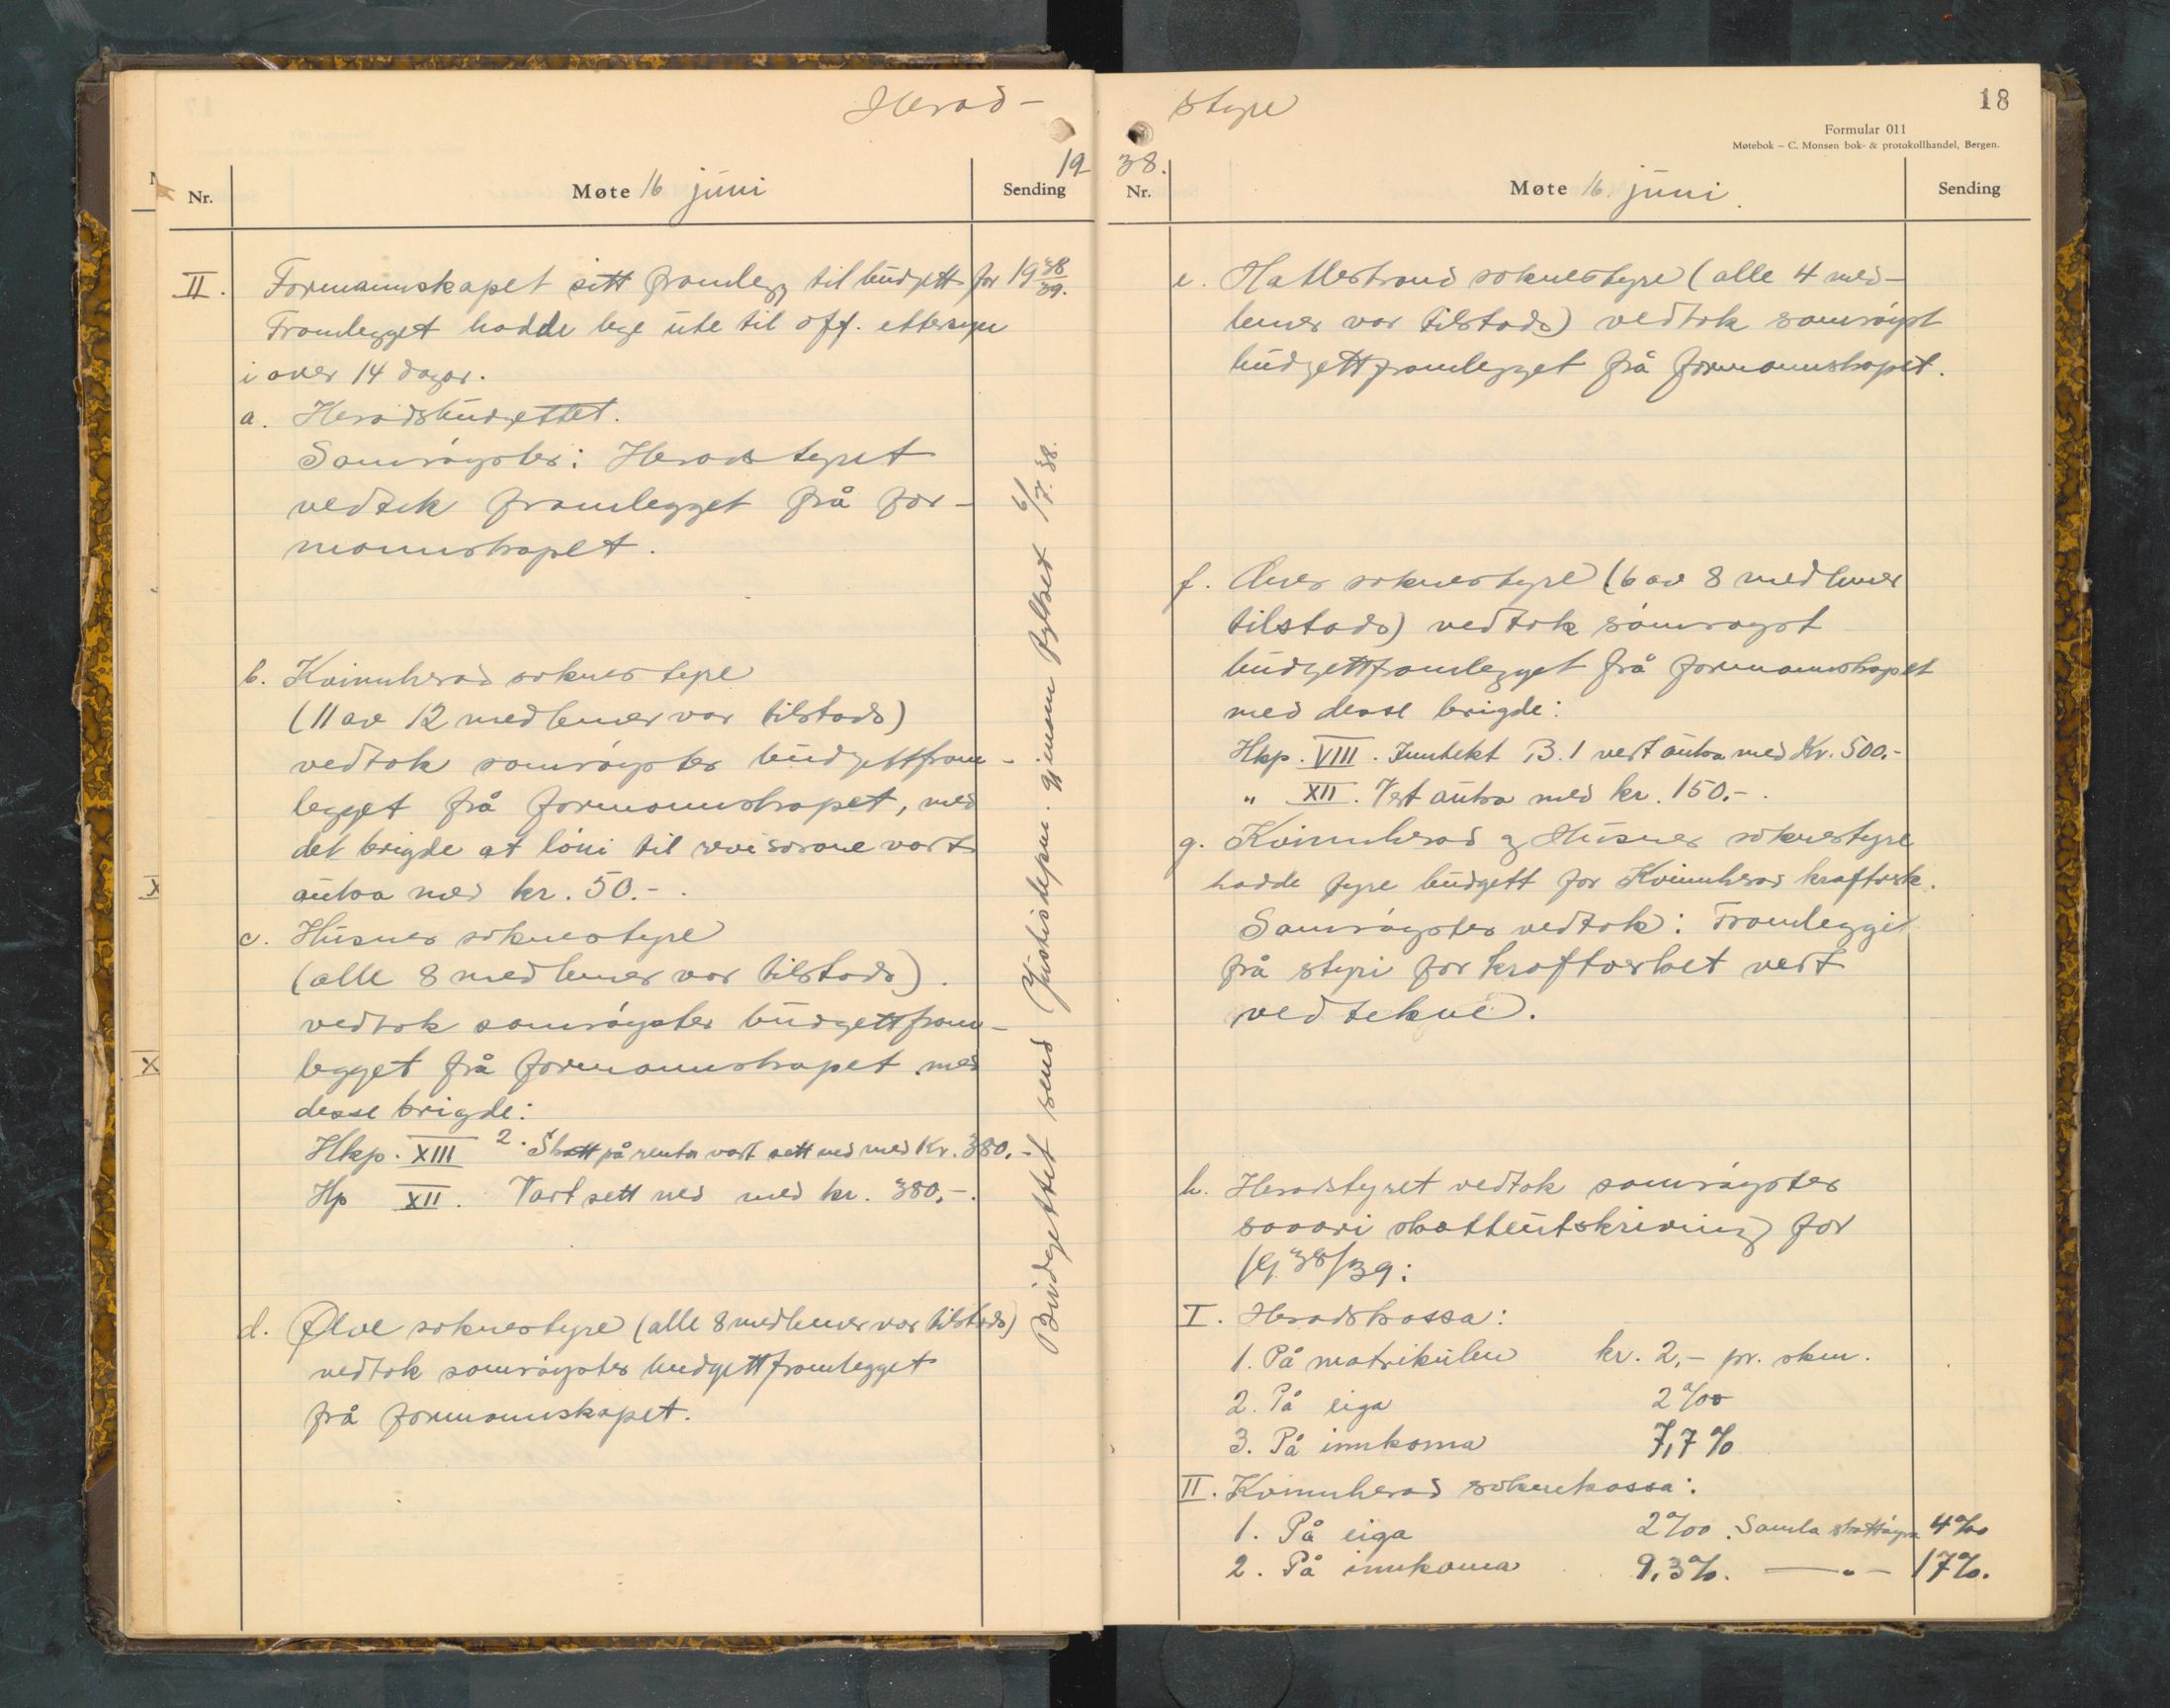 Herad-
19
Nr.
Møte 16 juni
Sending
II. Formannskapet sitt framlegg til budgett for 19 38/39.
Framlegget hadde lege ute til off. ettersyn
i over 14 dagar.
a. Heradsbudgettet.
Samrøystes: Heradstyret
vedtek framlegget frå for-
mannskapet.
b. Kvinnherad soknestyre
(11 av 12 medlemer var tilstads)
vedtok samrøystes budgettfram-
legget frå formannskapet, med
det brigde at løni til revisorane vart
auka med kr. 50.-.
c. Husnes soknestyre
(alle 8 medlemer var tilstads).
vedtok samrøystes budgettfram-
legget frå formannskapet med
desse brigde:
Hkp. XIII 2. Skatt på renta vart sett ned med Kr. 380.-
Hp XII. Vart sett ned med kr. 380,-.
d. Ølve soknestyre (alle 8 medlemer var tilstads)
vedtok samrøystes budgettframlegget
frå formannskapet.
Budgettet send Justisdepm. gjenom Fylket 6/7.38.
styre
18
Formular 011
Møtebok – C. Monsen bok- & protokollhandel, Bergen.
38.
Nr.
Møte 16. juni.
Sending
e. Hatlestrand soknestyre (alle 4 med-
lemer var tilstads) vedtok samrøyst
budgettframlegget frå formannskapet.
f. Ænes soknestyre (6 av 8 medlemer
tilstads) vedtok samrøyst
budgettframlegget frå formannskapet
med desse brigde:
Hkp. VIII. Inntekt B.1 vert auka med Kr. 500.-
" XII. Vert auka med kr. 150.-.
g. Kvinnherad og Husnes soknestyre
hadde fyre budgett for Kvinnherad kraftverk.
Samrøystes vedtok: Framlegget
frå styri for kraftverket vert
vedteke.
h. Heradstyret vedtok samrøystes
soorri skatteutskriving for
19.38/39:
I. Heradskassa:
1. På matrikulen kr. 2,- pr. skm.
2. På eiga 2 ‰
3. På innkoma 7,7 %
II. Kvinnherad soknekassa:
1. På eiga 2 ‰. Samla skattøyre 4 ‰
2. På innkoma 9,3 %. —"— 17 %.